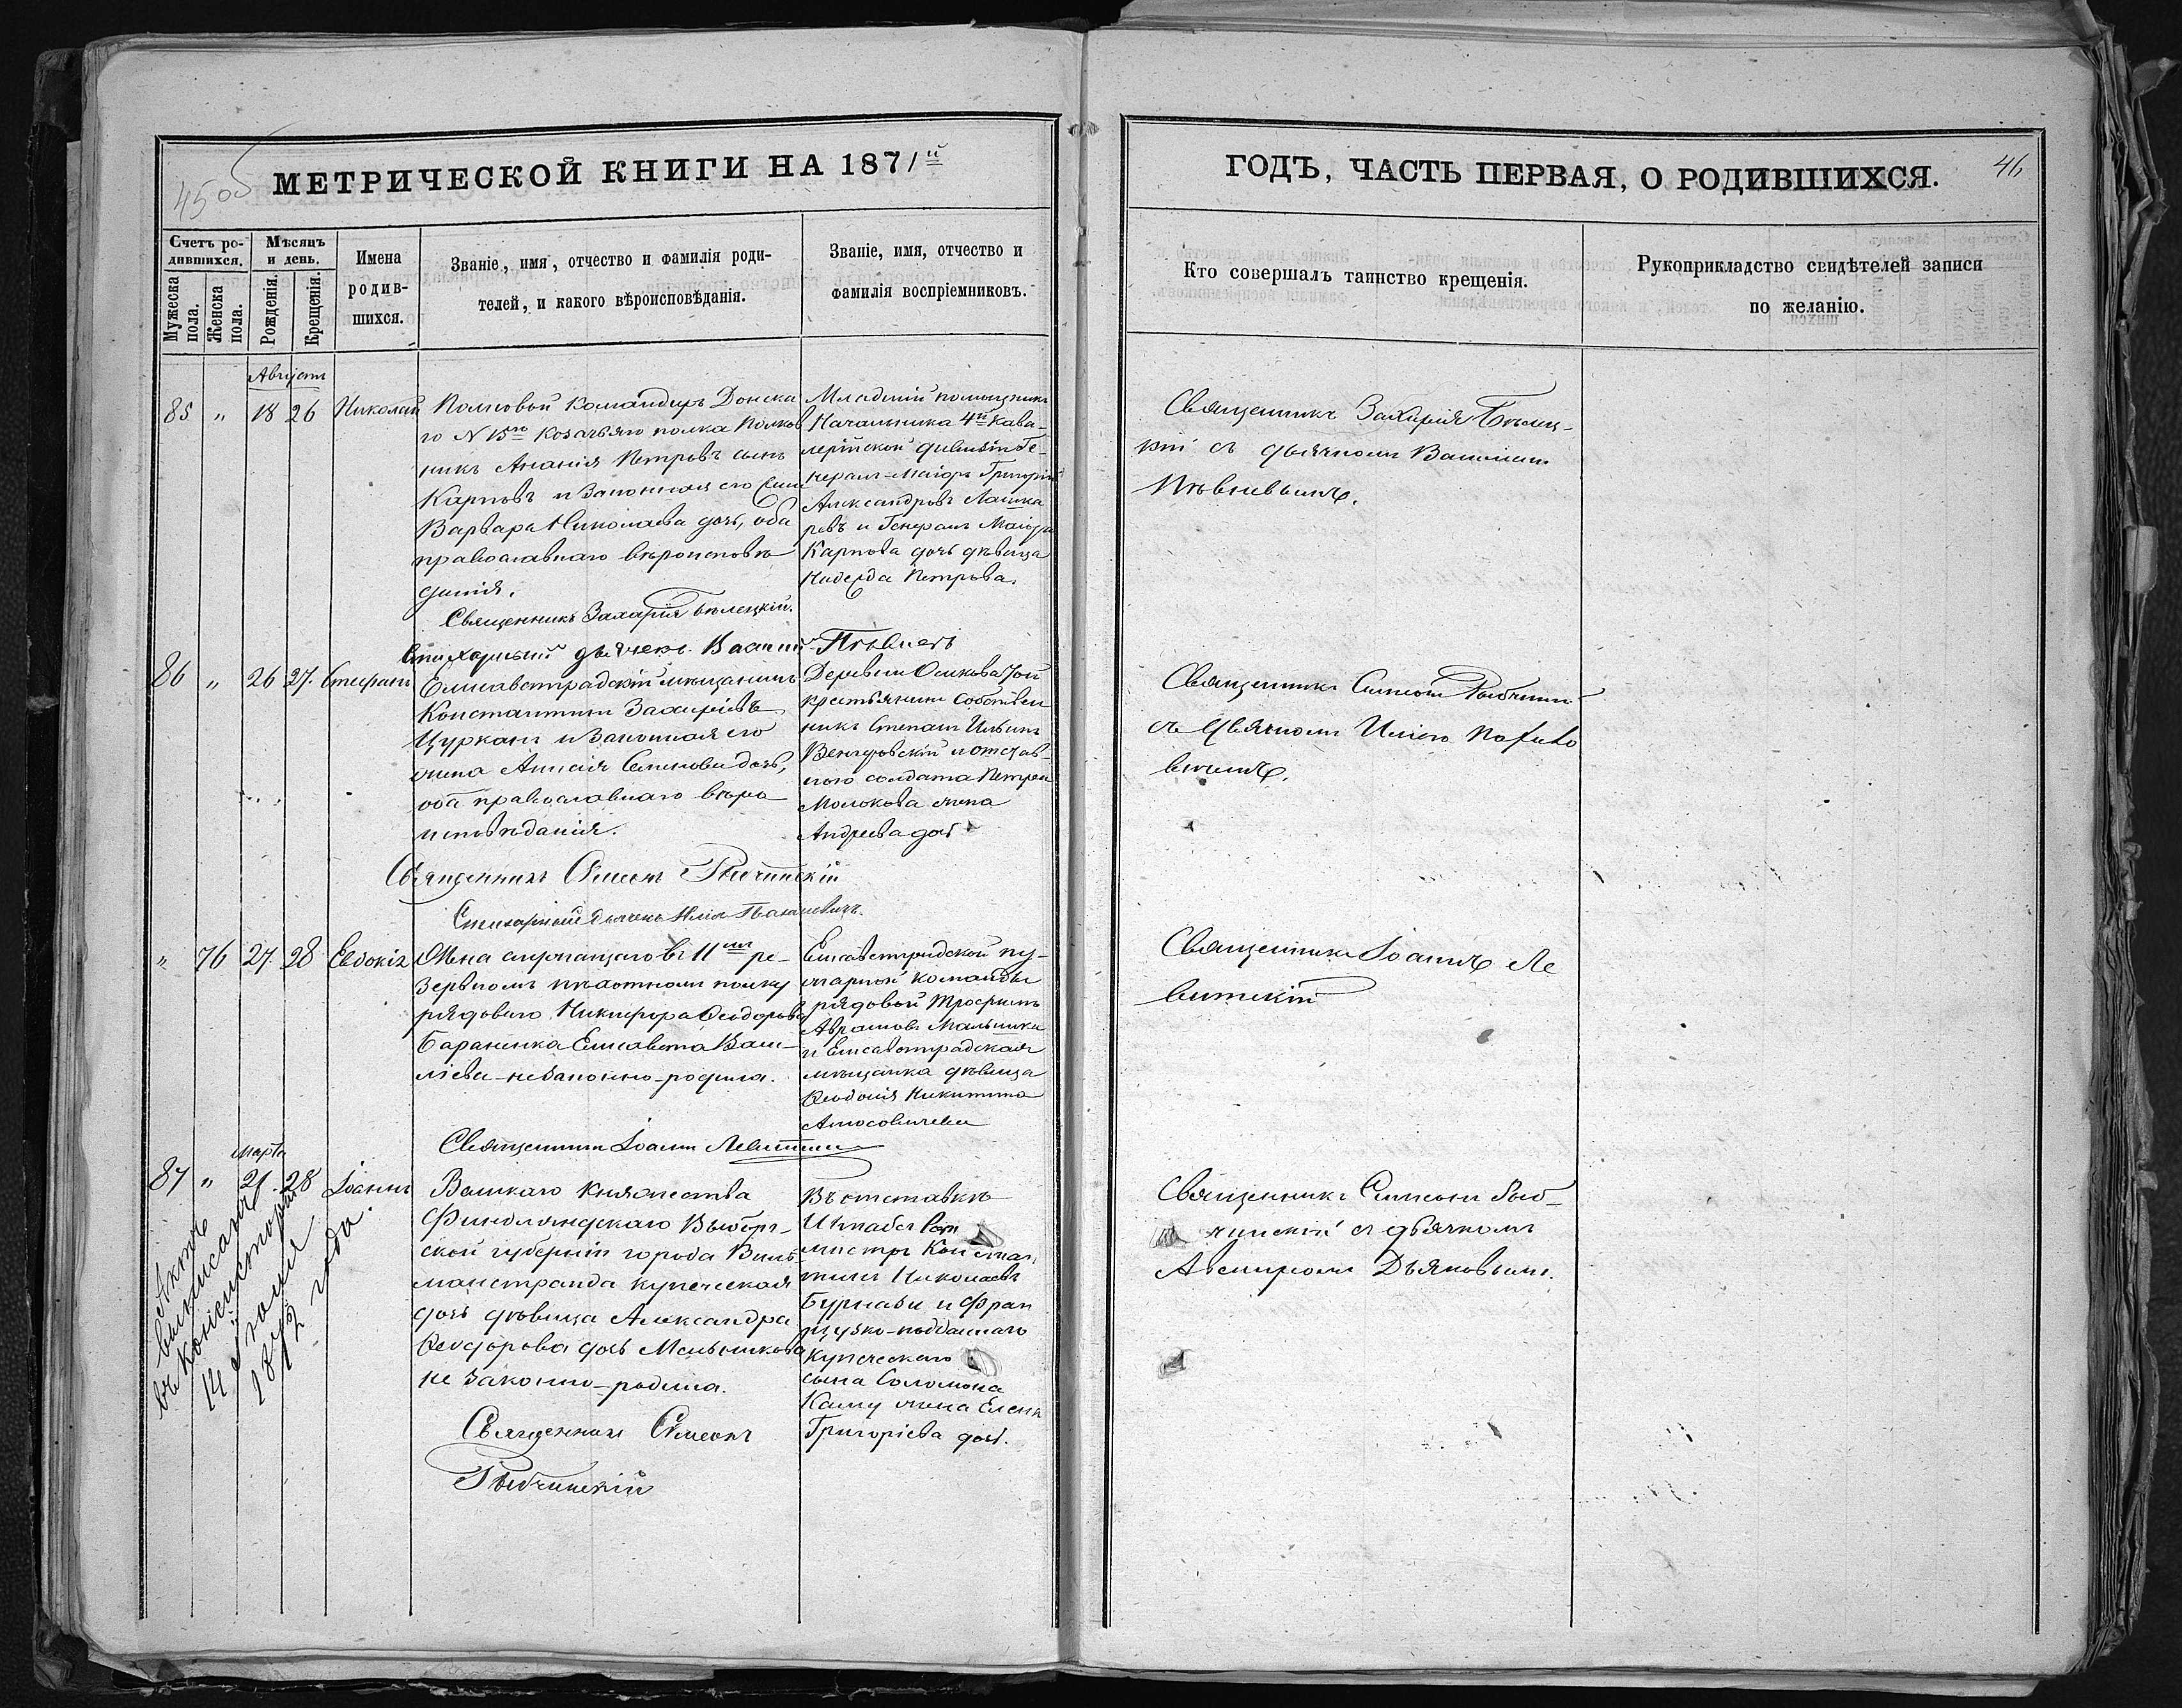 45 об
МЕТРИЧЕСКОЙ КНИГИ НА 1871й
ГОДЪ, ЧАСТЬ ПЕРВАЯ, О РОДИВШИХСЯ.
46
Счетъ ро-
дившихся.
Мужеска
пола.
Женска
пола.
Мѣсяцъ
и день.
Рожденія.
Крещенія.
Имена
родив-
шихся.
Званіе, имя, отчество и фамилія роди-
телей, и какого вѣроисповѣданія.
Званіе, имя, отчество и
фамилія воспріемниковъ.
Кто совершалъ таинство крещенія.
Рукоприкладство свидѣтелей записи
по желанію.
Августъ
85 " 18 26 Николай
Полковой Командиръ Донска
го N 15го Козачьяго полка Полков
никъ Ананія Петровъ сынъ
Карповъ и Законная его жена
Варвара Николаева дочь, оба
православнаго вѣроисповѣ
данія.
Священникъ Захарія Бѣлецкій.
Стихарный дьячекъ Василій Пѣвневъ
Младшій помощникъ
Начальника 4й Кава-
лерійской дивизіи Ге-
нералъ-Маіоръ Григорій
Александровъ Лашка
ревъ и Генералъ Маіора
Карпова дочь дѣвица
Надежда Петрова.
Священникъ Захарія Бѣлец-
кій съ дьячкомъ Василіемъ
Пѣвневымъ.
86 " 26 27. Стефанъ
Елисаветградскій мѣщанинъ
Константинъ Захаріевъ
Цурканъ и Законная его
жена Анисія Семенова дочь,
оба православнаго вѣро
исповѣданія.
Священникъ Симеонъ Рыбчинскій
Стихарный дьячекъ Илія
Деревни Осиковатой
крестьянинъ собствен
никъ Степанъ Ильинъ
и отстав-
ного солдата Петра
Молокова жена
Андреева дочь
Священникъ Симеонъ Рыбчинскій
съ дьячкомъ Иліею
" 76 27. 28 Евдокія
Жена служащаго въ 11мъ ре-
зервномъ пѣхотномъ полку
рядоваго Никифора Ѳеодорова
Бараненка Елисавета Васи-
ліева незаконно-родила.
Священникъ Іоаннъ Левитскій
Елисаветградской по-
жарной команды
рядовой Трофимъ
Аврамовъ
и Елисаветградская
мѣщанка дѣвица
Ѳеодосія Никитина
Священникъ Іоаннъ Ле
витскій
Марта
87 " 21. 28 Іоаннъ
Актъ
выписанъ
въ Консисторію
14 Іюля
1872 года.
Великаго Княжества
Финляндскаго Выборг-
ской губерніи города Виль-
манстранда купеческая
дочь дѣвица Александра
Ѳеодорова дочь Мельникова
не законно-родила.
Священникъ Симеонъ
Рыбчинскій
Въ отставкѣ
Штабсъ Рот
мистръ Констан
тинъ Николаевъ
Бурнази и фран
цузко-подданнаго
Купеческаго
сына Соломона
Каму жена Елена
Григоріева дочь.
Священникъ Симеонъ Рыб-
чинскій съ дьячкомъ
Авениромъ Дьяковымъ.